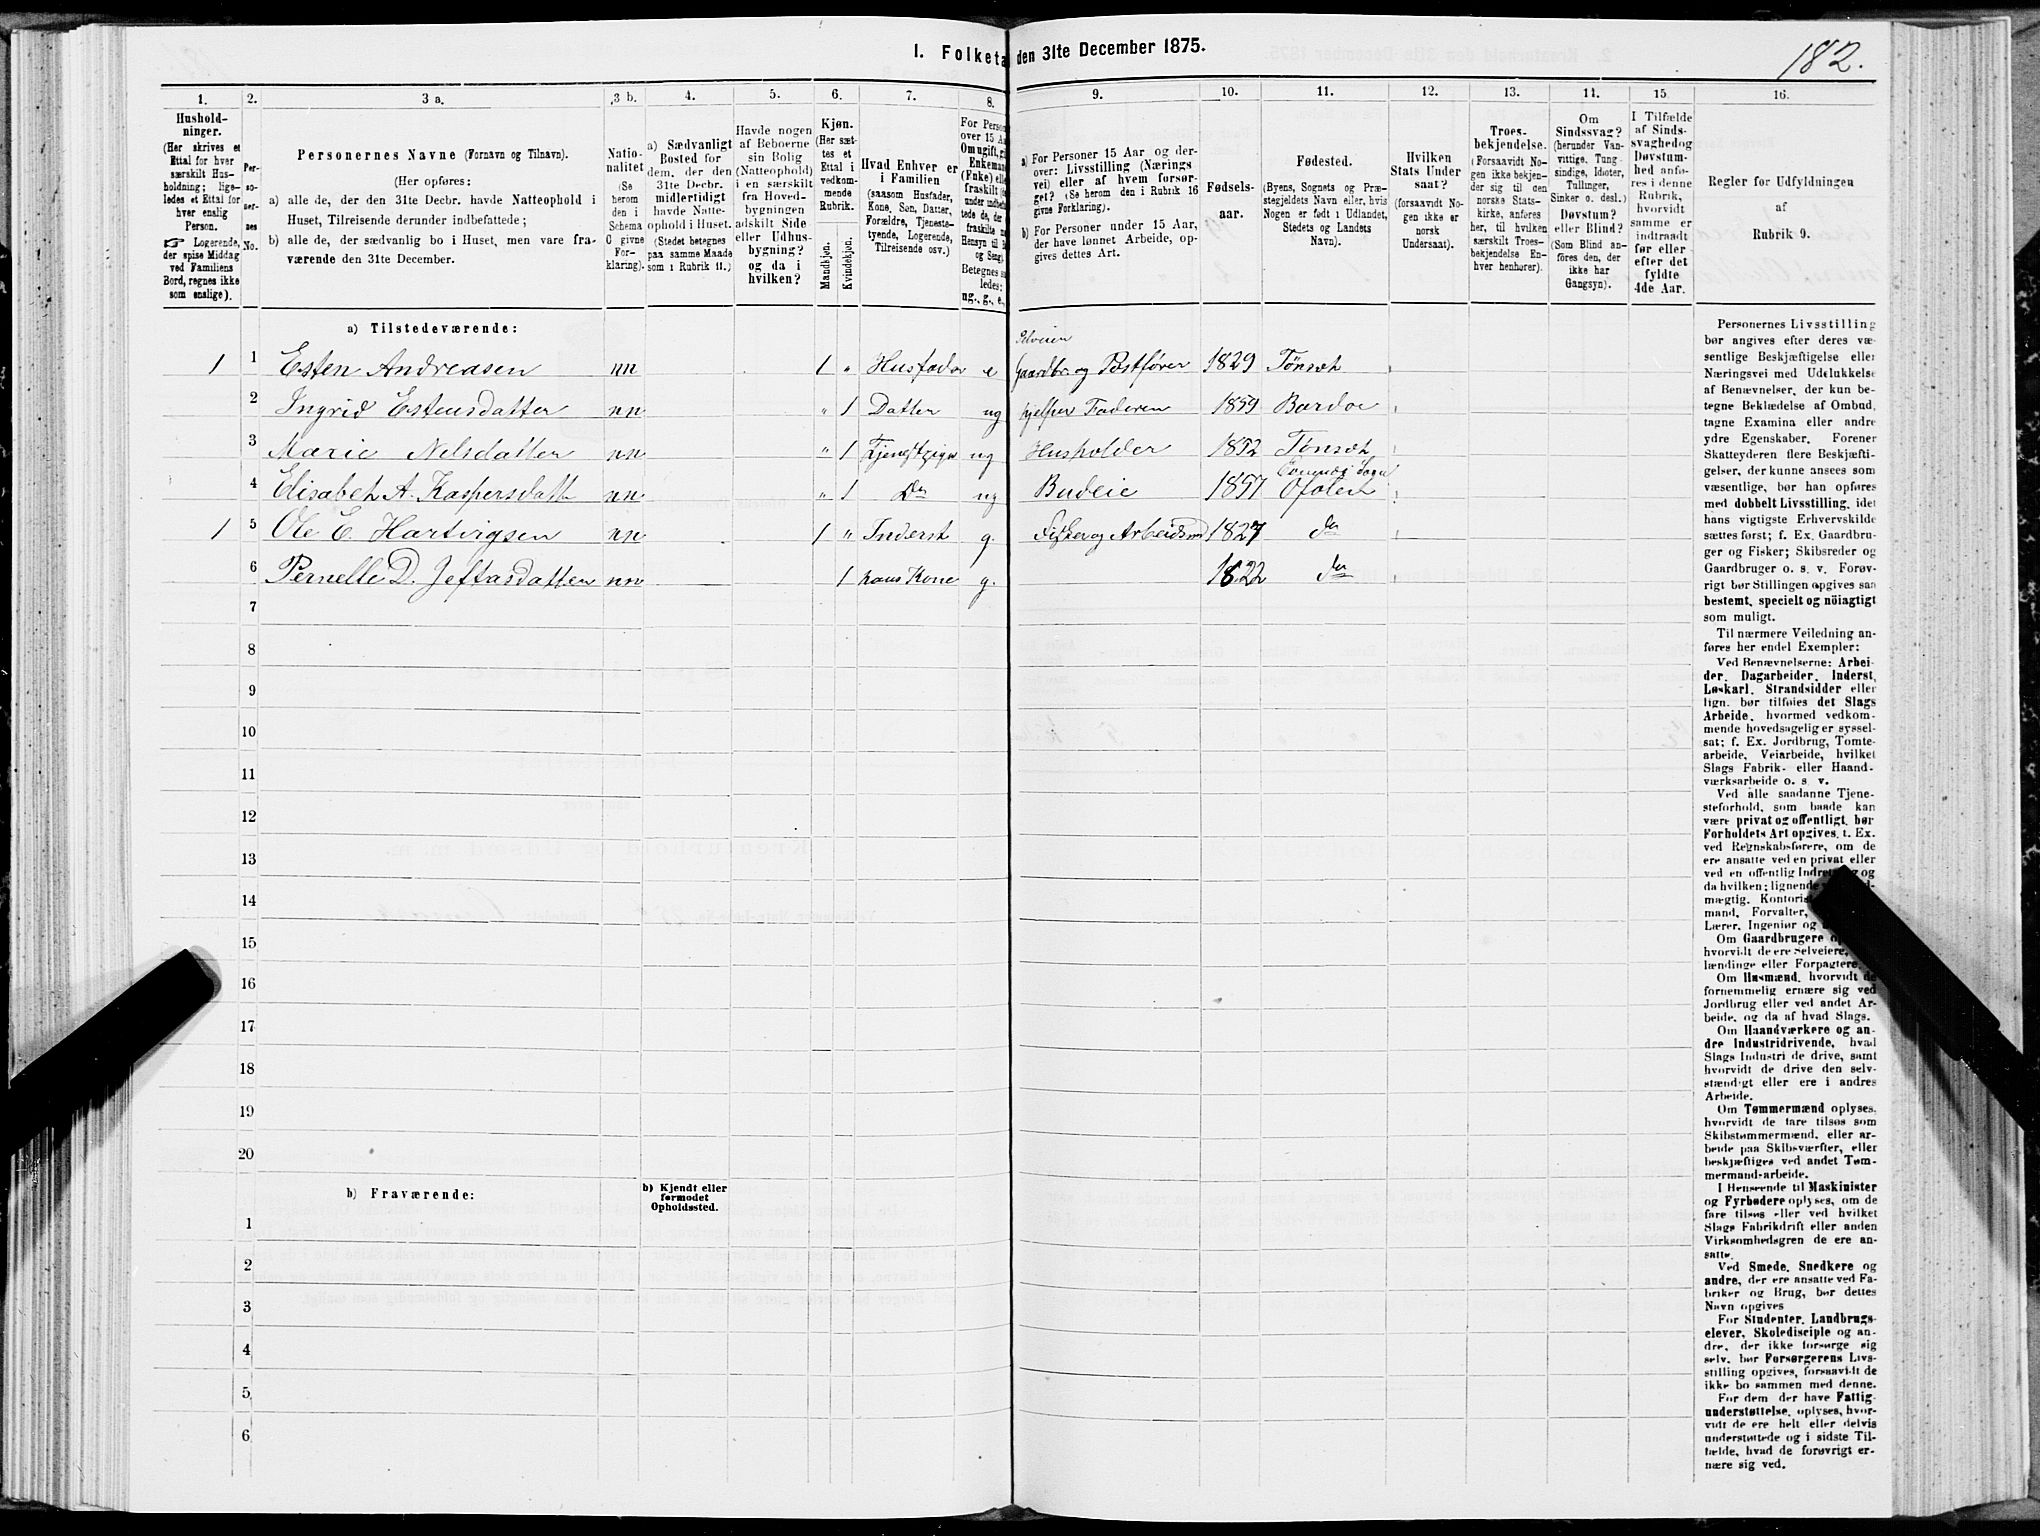 182.
I. Folketa
den 31te December 1875.
1. 2. 3 a. 3 b. 4. 5. 6. 7. 8. 9. 10. 11. 12. 13. 14. 15. 16.
Hushold-
ninger.
(Her skrives et
Ettal for hver
særskilt Hus-
holdning; lige-
ledes et Ettal for
hver enslig
Person.
☞ Logerende,
der spise Middag
ved Familiens
Bord, regnes ikke
som enslige).
Per-
so-
ner-
nes
No.
Personernes Navne (Fornavn og Tilnavn).
(Her opføres:
a) alle de, der den 31te Decbr. havde Natteophold i
Huset, Tilreisende derunder indbefattede;
b) alle de, der sædvanlig bo i Huset, men vare fra-
værende den 31te December.
Natio-
nalitet
(Se
herom
den i
Schema
C givne
For-
klaring).
a) Sædvanligt
Bosted for
dem, der den
31te Decbr.
midlertidigt
havde Natte-
ophold i Huset.
(Stedet betegnes
paa samme Maade
som i Rubrik 11.)
Havde nogen
af Beboerne
sin Bolig
(Natteophold)
i en særskilt
fra Hoved-
bygningen
adskilt Side
eller Udhus-
bygning?
og da i
hvilken?
Kjøn.
(Her sæt-
tes et
Ettal i
vedkom-
mende
Rubrik.
Mandkjøn.
Kvindekjøn.
Hvad Enhver er
i Familien
(saasom Husfader,
Kone, Søn, Datter,
Forældre, Tjeneste-
tyende, Logerende,
Tilreisende osv.)
For Person
over 15 Aa
Om ugift, gi
Enkeman
(Enke) elle
fraskilt
under indbef
tede de, der
fraskilte
Hensyn til
og Seng).
Betegnes s
ledes:
ug., g., e.,
a) For Personer 15 Aar og der-
over: Livsstilling (Nærings-
vei) eller af hvem forsør-
get? (Se herom den i Rubrik 16
givne Forklaring).
b) For Personer under 15 Aar,
der have lønnet Arbeide, op-
gives dettes Art.
Fødsels-
aar.
Fødested.
(Byens, Sognets og Præ-
stegjeldets Navn eller, hvis
Nogen er født i Udlandet,
Stedets og Landets
Navn).
Hvilken
Stats Under
saat?
(forsaavidt No-
gen ikke er
norsk
Undersaat).
Troes-
bekjendelse.
(Forsaavidt No-
gen ikke bekjen-
der sig til den
norske Stats-
kirke, anføres
her, til hvilken
særskilt Troes-
bekjendelse En-
hver henhører).
Om
Sindssvag?
(herunder Van-
vittige, Tung-
sindige, Idioter,
Tullinger,
Sinker o. desl.)
Døvstum?
eller Blind?
(Som Blind an-
føres den, der
ikke har
Gangsyn).
I Tilfælde
af Sinds-
svaghed og
Døvstum-
hed anfø-
res i denne
Rubrik,
hvorvidt
samme er
indtraadt
før eller
efter det
fyldte
4de Aar.
Regler for Udfyldningen
af
Rubrik 9.
a) Tilstedeværende:
Selveier
1 1 Esten Andreasen nn 1 " Husfader e Gaardbr. og Postfører 1829 Tønset
2 Ingrid Estensdatter nn " 1 Datter ug hjelper Faderen 1859 Bardoe
3 Marie Nelsdatter nn " 1 Tjenestpige ug Husholder 1852 Tønset
4 Elisabet A. Kaspersdatt nn " 1 Do ug Budeie 1857 Ofoten
1 5 Ole E. Hartvigsen nn 1 " Inderst g. Fisker og Arbeidsm 1827 do
6 Pernelle D. Jeftasdatter nn 1 hans Kone g. 1822 do
7
8
9
10
11
12
13
14
15
16
17
18
19
20
b) Fraværende:
b) Kjendt eller
formodet
Opholdssted.
1
2
3
4
5
6
Personernes Livsstilling
bør angives efter deres væ-
sentlige Beskjæftigelse eller
Næringsvei med Udelukkelse
af Benævnelser, der kun be-
tegne Beklædelse af Ombud,
tagne Examina eller andre
ydre Egenskaber. Forener
Skatteyderen flere Beskjæfti-
gelser, der kunne ansees som
væsentlige, bør han opføres
med dobbelt Livsstilling, idet
hans vigtigste Erhvervskilde
sættes først; f. Ex. Gaardbru-
ger og Fisker; Skibsreder og
Gaardbruger o. s. v. Forøv-
rigt bør Stillingen opgives saa
bestemt, specielt og nöiagtigt
som muligt.
Til nærmere Veiledning an-
føres her endel Exempler:
Ved Benævnelserne: Arbei-
der, Dagarbeider, Inderst,
Løskarl, Strandsidder eller
lign. bør tilføies det Slags
Arbeide, hvormed vedkom-
mende hovedsagelig er syssel-
sat; f. Ex. Jordbrug, Tomte-
arbeide, Veiarbeide, hvilket
Slags Fabrik- eller Haand-
værksarbeide o. s. v.
Ved alle saadanne Tjene-
steforhold, som baade kan
være privat og offentligt, bør
Forholdets Art opgives, t. Ex.
ved Regnskabsførere, om de
ere ansatte ved en privat eller
ved en offentlig
da hvilken; lignende
mægtig, Kontoris
mand, Forvalter,
Lærer, Ingeniør og
Om Gaardbrugere
hvorvidt de ere Selveiere,
lændinge eller Forpagtere.
Om Husmænd, hvorvidt de
fornemmelig ernære sig ved
Jordbrug eller ved andet Ar-
beide, og da af hvad Slags.
Om Haandværkere og an-
dre Industridrivende, hvad
Slags Industri de drive, samt
hvorvidt de drive den selv-
stændigt eller ere i andres
Arbeide.
Om Tømmermænd oplyses,
hvorvidt de fare tilsøs som
Skibstømmermænd, eller ar-
beide paa Skibsværfter, eller
beskjæftiges ved andet Tøm-
mermandsarbeide.
I Henseende til Maskinister
og Fyrbødere oplyses, om de
fare tilsøs eller ved hvilket
Slags Fabrikdrift eller anden
Virksomhedsgren de ere an-
satte.
Ved Smede, Snedkere og
andre, der ere ansatte ved Fa-
briker og Brug, bør dettes
Navn opgives
For Studenter, Landbrugs-
elever, Skoledisciple og an-
dre, der ikke forsørge sig
selv, bør Forsørgerens Livs-
stilling opgives, forsaavidt de
ikke bo sammen med denne.
For dem, der have Fattig-
understøttelse, oplyses, hvor-
vidt de ere helt eller delvis
understøttede og i sidste Til-
fælde, hvad de forøvrigt er-
nære sig ved.